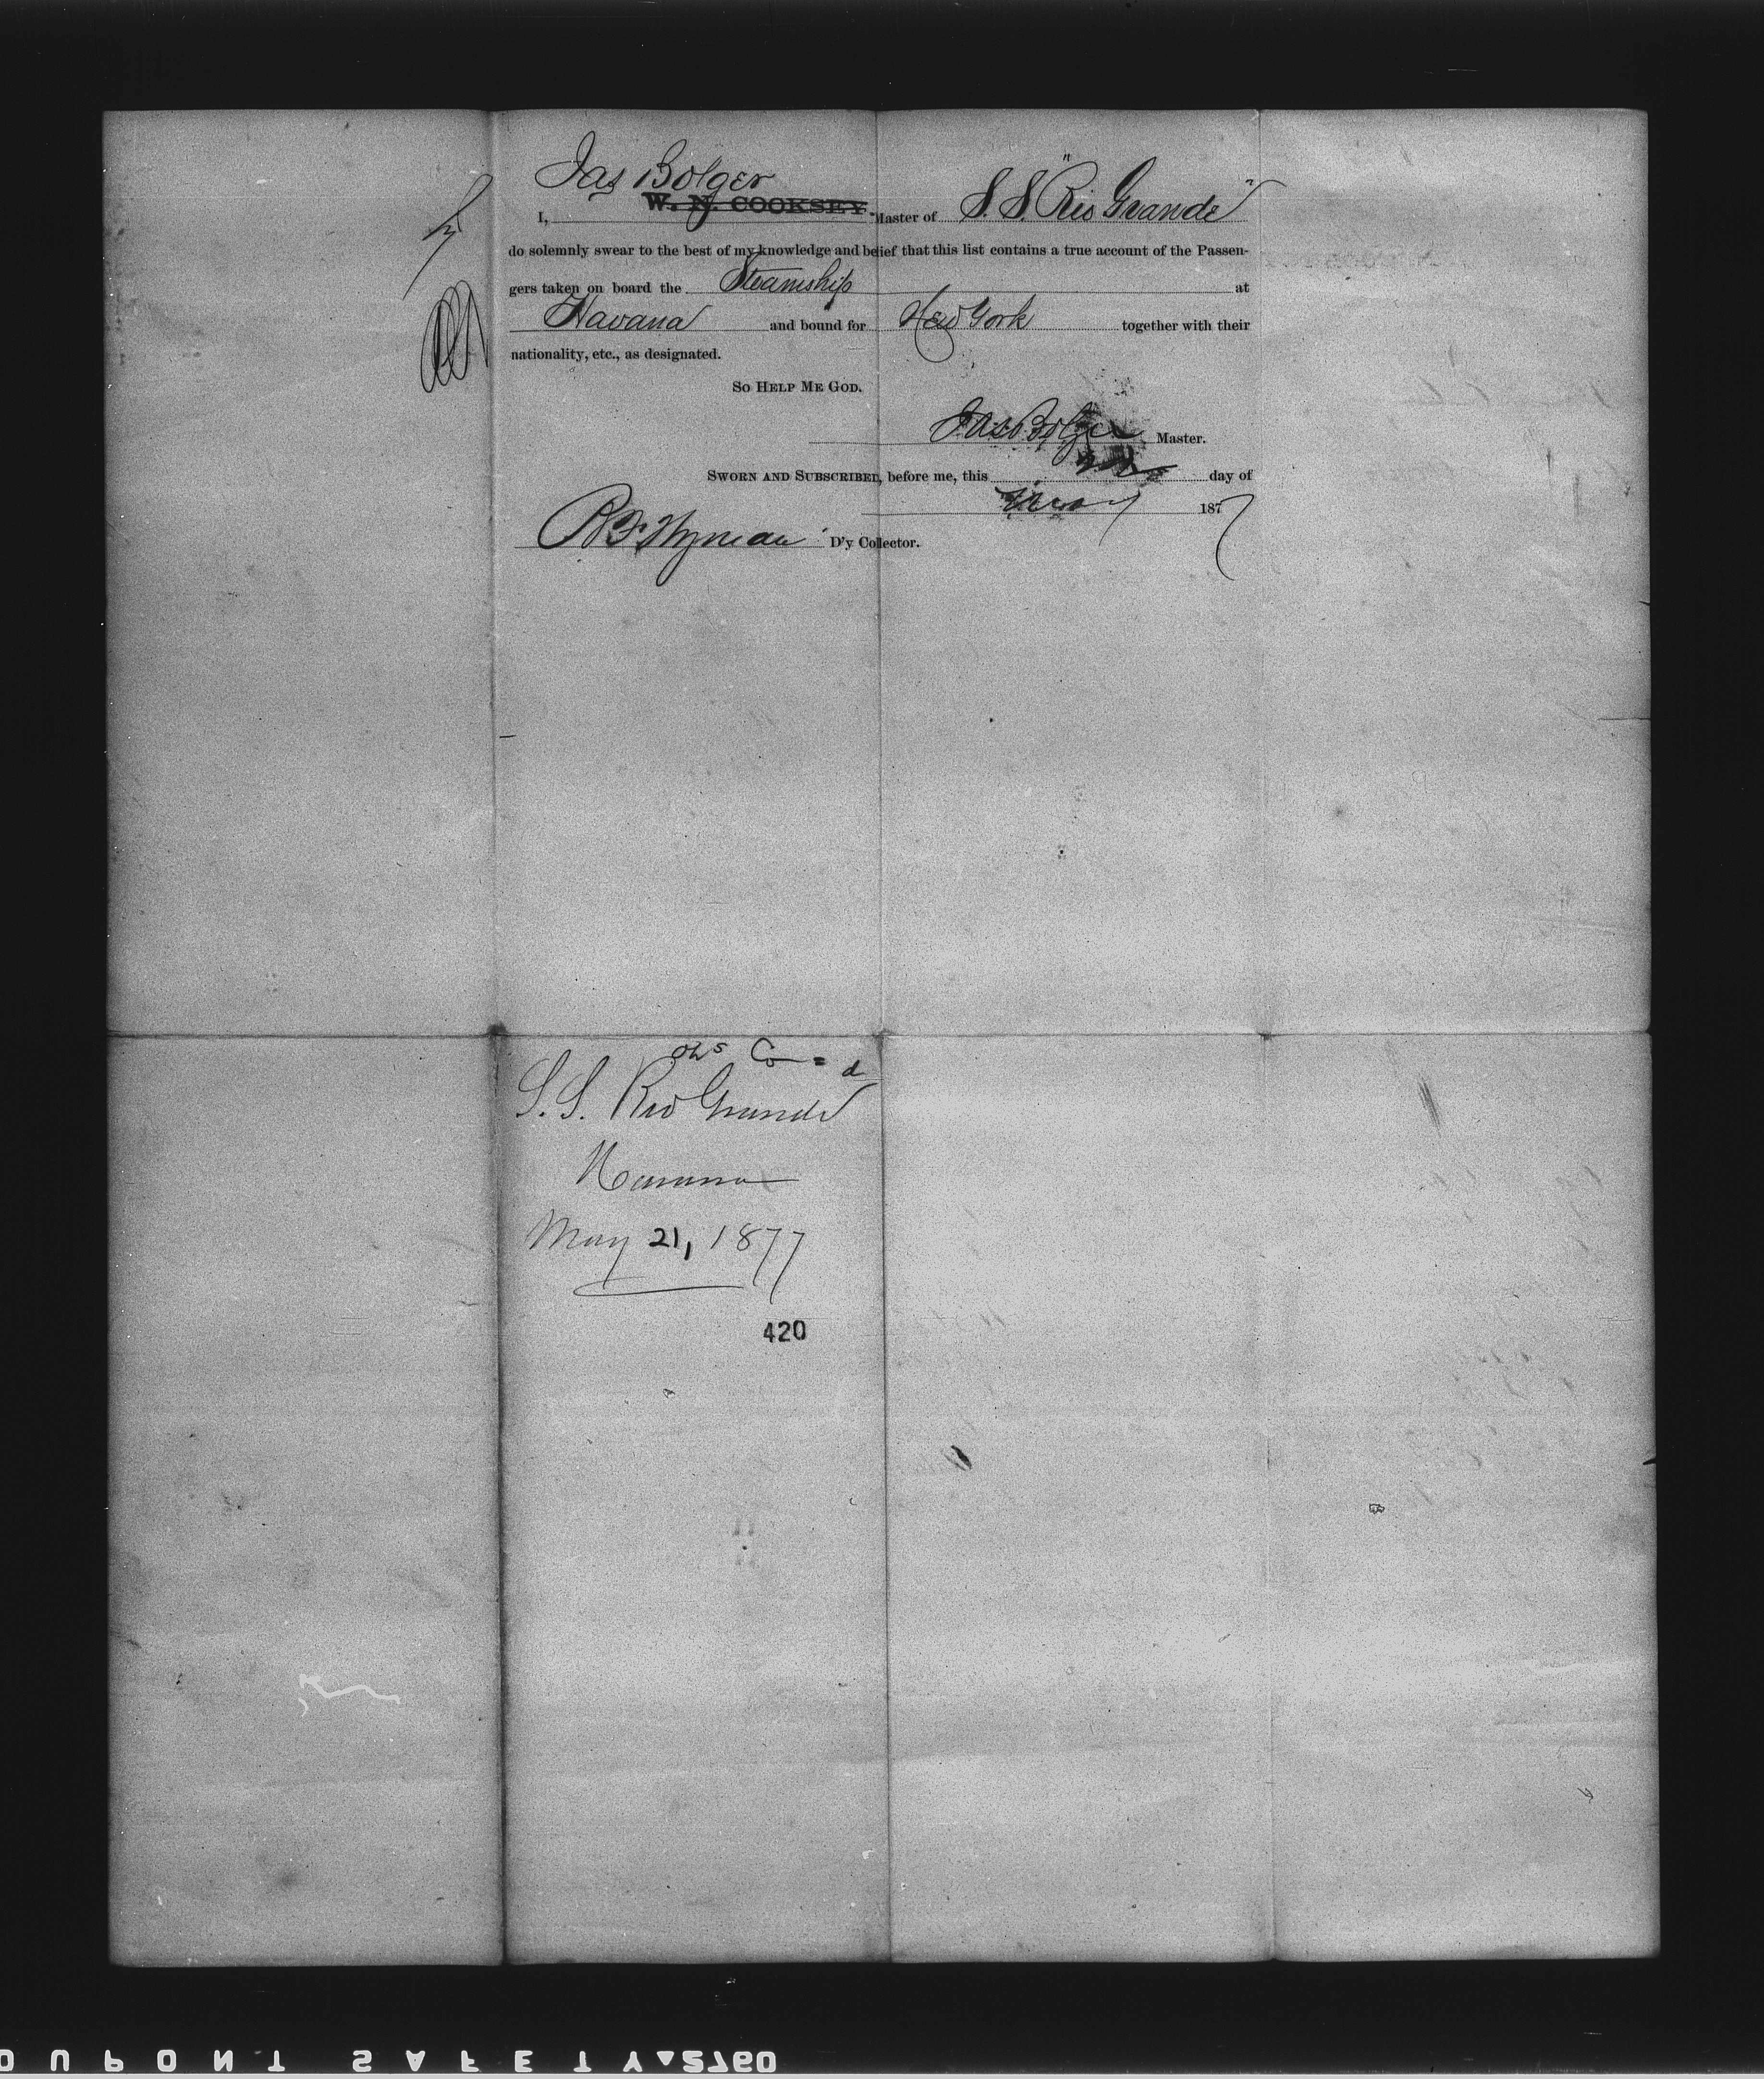 Jas Bolger
I, W. N. COOKSEY. Master of S. S. "Rio Grande"
do solemnly swear to the best of my knowledge and belief that this list contains a true account of the Passen-
gers taken on board the Steamship at
Havana and bound for New York together with their
nationality, etc., as designated.
SO HELP ME GOD.
Jas Bolger Master.
SWORN AND SUBSCRIBED, before me, this day of
May 1877
D'y Collector.
S. S. Rio Grande
Havana
May 21, 1877
420
DUPONT SAFETY 2760